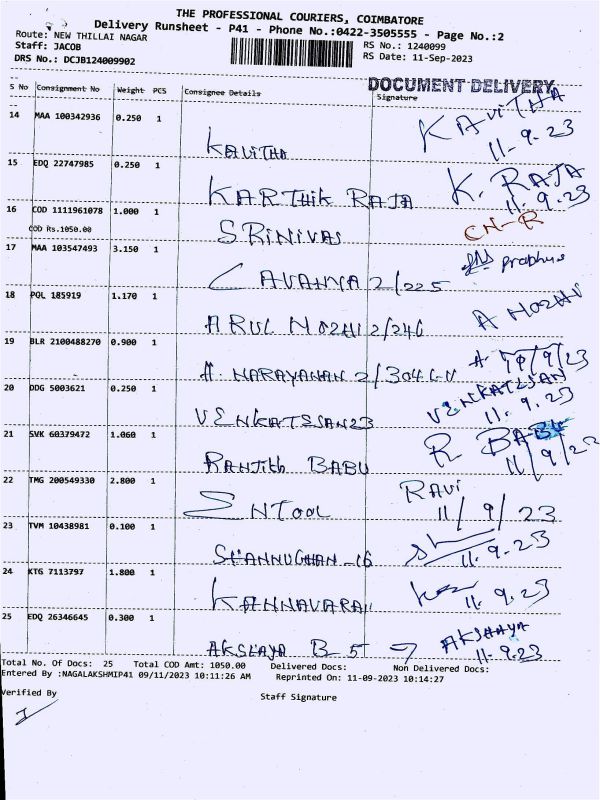 THE PROFESSIONAL COURIERS, COIMBATORE
Delivery Runsheet - P41 - Phone No.:0422-3505555 - Page No.:2
Route: NEW THILLAI NAGAR
RS No.: 1240099
Staff: JACOB
RS Date: 11-Sep-2023
DRS No.: DCJB124009902
DOCUMENT DELIVERY
S No Consignment No Weight PCS Consignee Details Signature
14 MAA 100342936 0.250 1 KAVITHA KAVITHA 11-9-23
15 EDQ 22747985 0.250 1 KARTHIK RAJA K. RAJA 11.9.23
16 COD 1111961078 1.000 1 SRINIVAS CN-R
COD Rs.1050.00
17 MAA 103547493 3.150 1 LAVANYA 2/225 prabhu
18 POL 185919 1.170 1 ARUL MOZHI 2/246 A MOZHI
19 BLR 2100488270 0.900 1 A. NARAYANAN 2/304 A 11/9/23
20 DDG 5003621 0.250 1 VENKATESSAN23 VENKATESAN 11.9.23
21 SVK 60379472 1.060 1 RANJITH BABU R BABU 11/9/23
22 TMG 200549330 2.800 1 SNTOOL RAVI 11/9/23
23 TVM 10438981 0.100 1 11.9.23
24 KTG 7113797 1.800 1 11.9.23
25 EDQ 26346645 0.300 1 AKSHAYA B-5 → AKSHAYA 11-9.23
Total No. Of Docs: 25 Total COD Amt: 1050.00 Delivered Docs: Non Delivered Docs:
Entered By :NAGALAKSHMIP41 09/11/2023 10:11:26 AM Reprinted On: 11-09-2023 10:14:27
Verified By Staff Signature